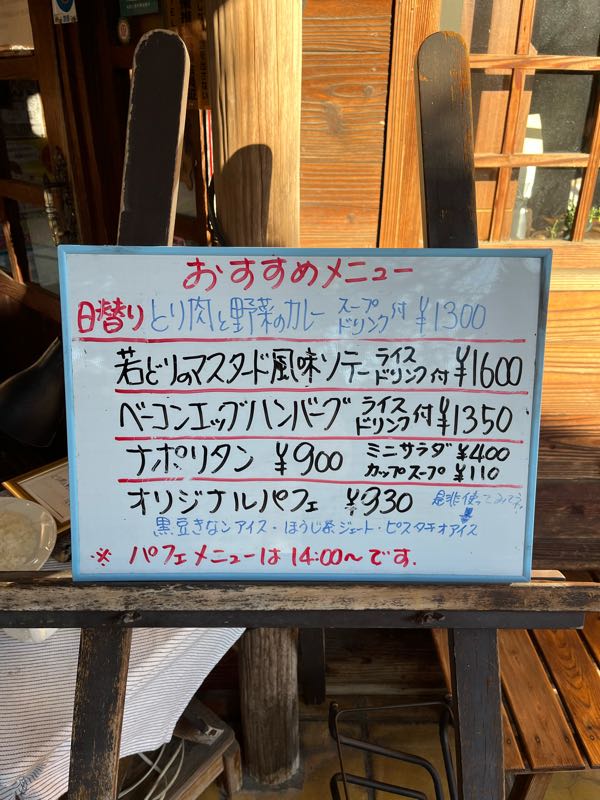 おすすめメニュー
日替り とり肉と野菜のカレー スープ ドリンク付 ¥1300
若どりのマスタード風味ソテー ライス ドリンク付 ¥1600
ベーコンエッグハンバーグ ライス ドリンク付 ¥1350
ナポリタン ¥900 ミニサラダ ¥400
カップスープ ¥110
オリジナルパフェ ¥930 是非使ってみて
黒豆きなこアイス・ほうじ茶ジェラート・ピスタチオアイス
※ パフェメニューは 14:00〜です.